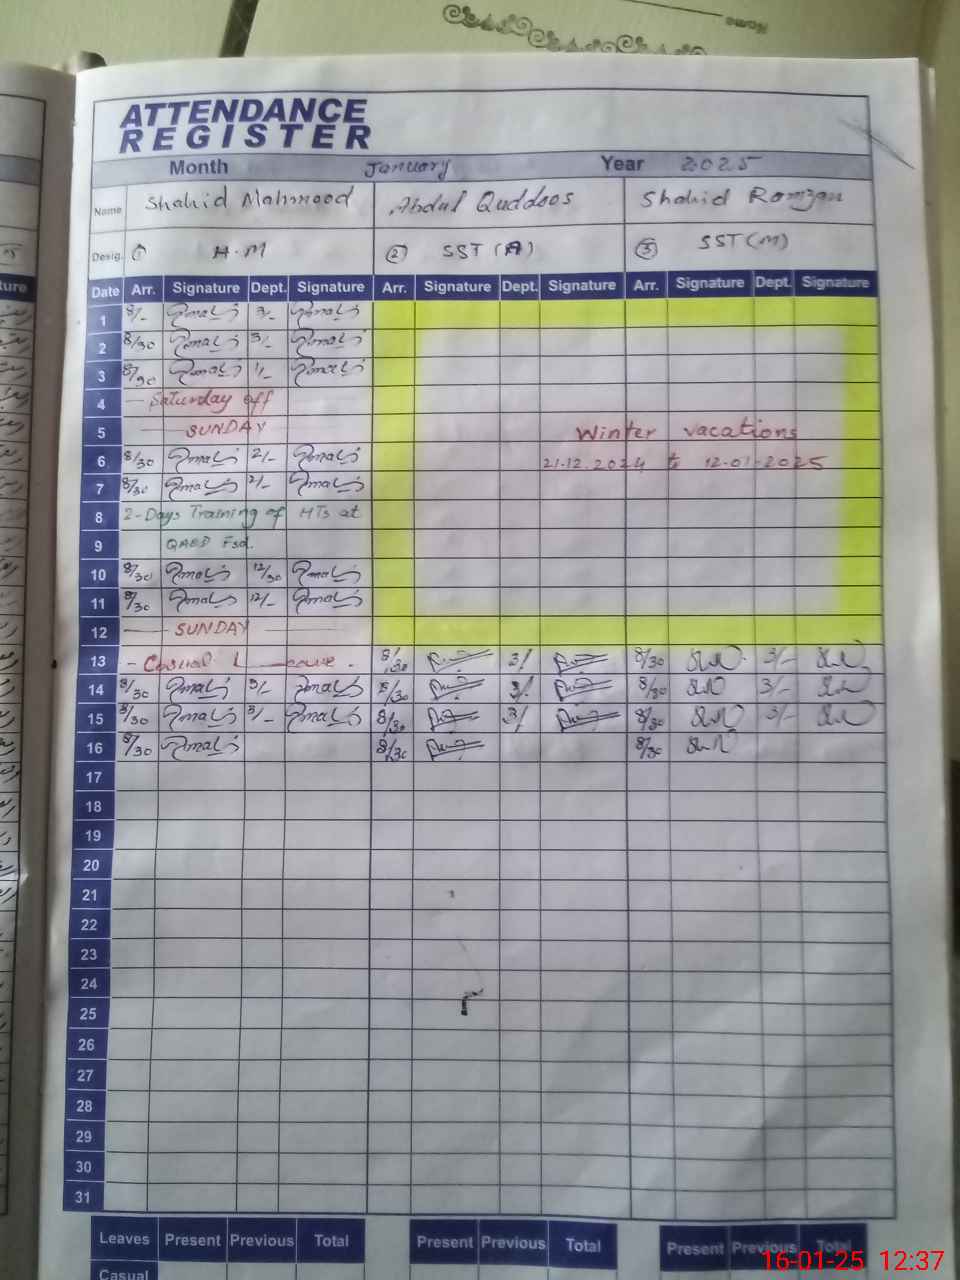 Name
ATTENDANCE
REGISTER
Month January Year 2025
Name Shahid Mahmood Abdul Quddoos Shahid Ramzan
Desig. ① H.M ② SST (A) ③ SST (M)
Date Arr. Signature Dept. Signature Arr. Signature Dept. Signature Arr. Signature Dept. Signature
1 8/- 3/-
2 8/30 3/-
3 8/30 1/-
4 Saturday off
5 SUNDAY Winter vacations
6 8/30 2/- 21.12.2024 to 12-01-2025
7 8/30 2/-
8 2-Days Training of HTs at
9 QAED Fsd.
10 8/30 12/30
11 8/30 12/-
12 SUNDAY
13 - Casual Leave - 8/30 3/ 8/30 3/-
14 8/30 3/- 8/30 3/ 8/30 3/-
15 8/30 3/- 8/30 3/ 8/30 3/-
16 8/30 8/30 8/30
17
18
19
20
21
22
23
24
25
26
27
28
29
30
31
Leaves Present Previous Total Present Previous Total Present Previous Total
Casual
16-01-25 12:37